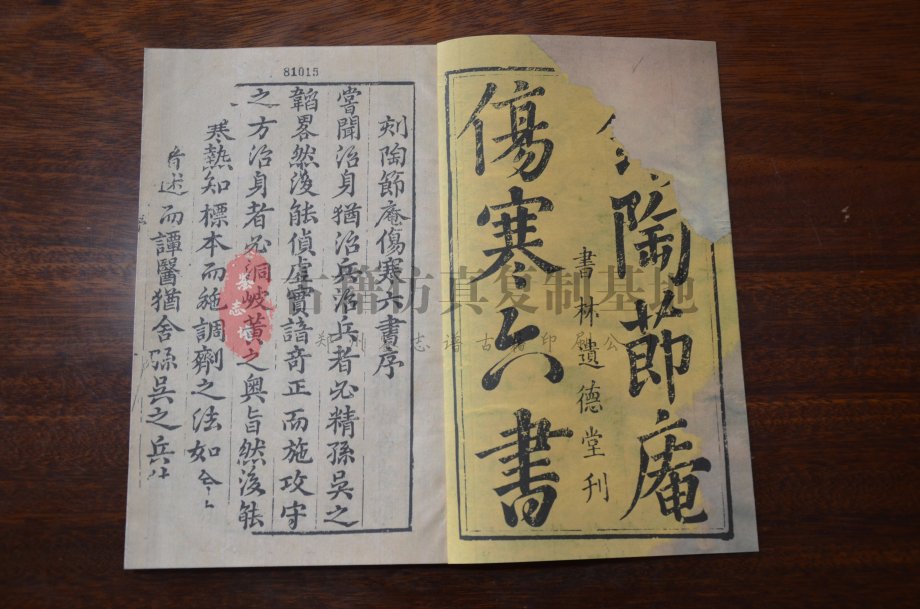 陶節庵
傷寒六書
書林遺德堂刊
81015
刻陶節庵傷寒六書序
嘗聞治身猶治兵治兵者必精孫吳之
韜畧然後能偵虛實諳奇正而施攻守
之方治身者必洞岐黃之奧旨然後能
寒熱知標本而施調劑之法如
述而譚醫猶舍孫吳之兵
古籍仿真复制基地